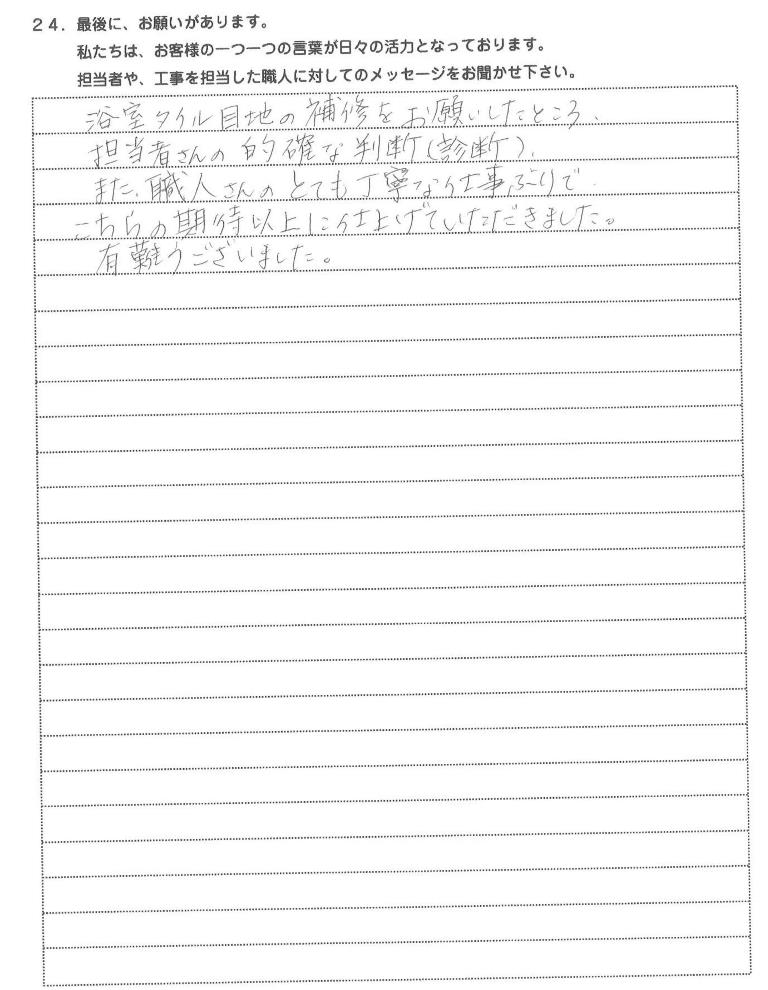 24. 最後に、お願いがあります。
私たちは、お客様の一つ一つの言葉が日々の活力となっております。
担当者や、工事を担当した職人に対してのメッセージをお聞かせ下さい。
浴室タイル目地の補修をお願いしたところ、
担当者さんの的確な判断(診断)、
また、職人さんのとても丁寧な仕事ぶりで
こちらの期待以上に仕上げていただきました。
有難うございました。